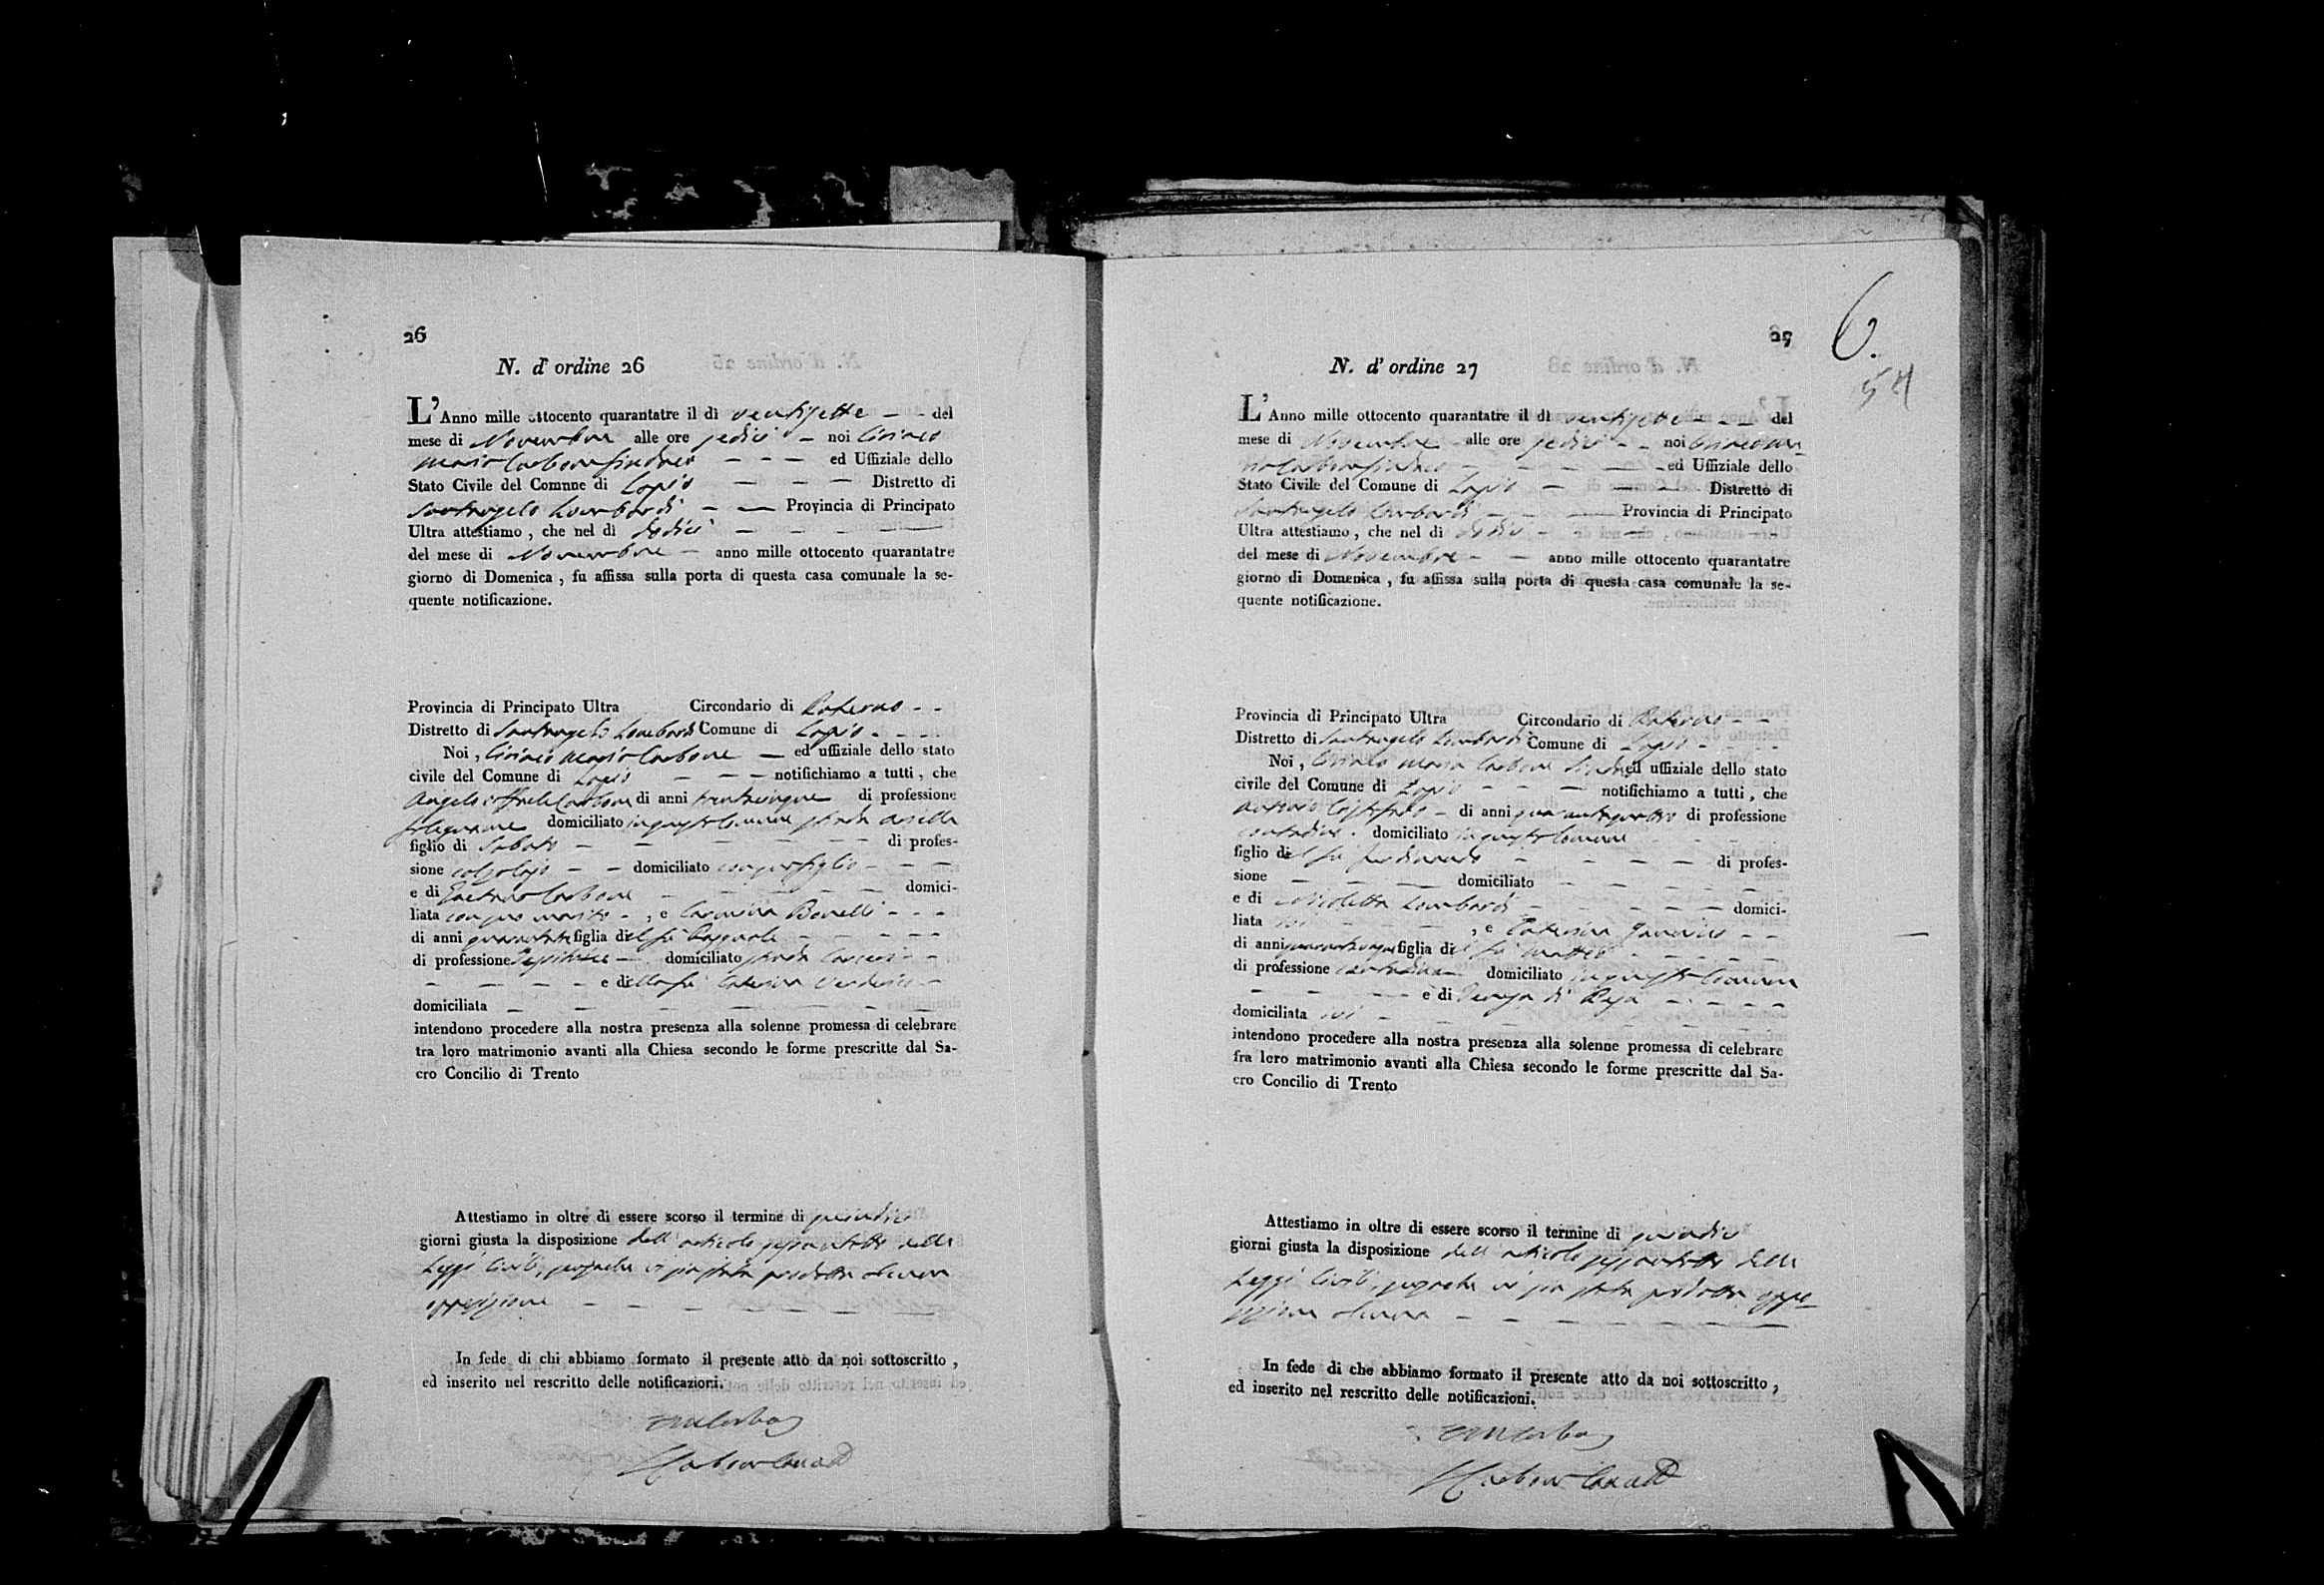 26
N. d' ordine 26
L' Anno mille ottocento quarantatre il di ventisette — - del
mese di Novembre alle ore sedici — noi Ciriaco
Maria Carbone Sindaco — - — ed Uffiziale dello
Stato Civile del Comnne di Lapio — — — Distretto di
Santangelo Lombardi — — Provincia di Principato
Ultra attestiamo , che nel dì dodici — - — —
del mese di Novembre — anno mille ottocento quarantatre
giorno di Domenica , fu affissa sulla porta di questa casa comunale la se-
quente notificazione.
Provincia di Principato Ultra Circondario di Paterno - -
Distretto di Santangelo Lombardi Comune di Lapio - - - -
Noi , Ciriaco Maria Carbone — ed uffiziale dello stato
civile del Comune di Lapio — - — notifichiamo a tutti , che
Angelo Carbone di anni trentacinque di professione
falegname domiciliato in questo Comune strada
figlio di Sabato — — — — — di profes-
sione — - domiciliato con suo figlio - — —
e di Gaetana Carbone — — — — — domici-
liata con suo marito - , e Carmina Bonelli - - -
di anni figlia del fu Pasquale — — — — —
di professione — domiciliato strada — -
— — — — e della fu Caterina —
domiciliata — — — — — —
intendono procedere alla nostra presenza alla solenne promessa di celebrare
tra loro matrimonio avanti alla Chiesa secondo le forme prescritte dal Sa-
cro Concilio di Trento
Attestiamo in oltre di essere scorso il termine di quindici
giorni giusta la disposizione dell' articolo sessantotto delle
Leggi Civili, senzache vi sia stata prodotta alcuna
opposizione — — — — — — —
In fede di chi abbiamo formato il presente atto da noi sottoscritto ,
ed inserito nel rescritto delle notificazioni.
27
6.
54
N. d' ordine 27
L' Anno mille ottocento quarantatre il di ventisette — — — del
mese di Novembre alle ore sedici - — noi Ciriaco Ma-
ria Carbone Sindaco — — — — — ed Uffiziale dello
Stato Civile del Comune di Lapio — — — Distretto di
Santangelo Lombardi — — — Provincia di Principato
Ultra attestiamo , che nel di dodici — -
del mese di Novembre - — anno mille ottocento quarantatre
giorno di Domenica , fu affissa sulla porta di questa casa comunale la se-
quente notificazione.
Provincia di Principato Ultra Circondario di Paterno - -
Distretto di Santangelo Lombardi Comune di Lapio - - - -
Noi , Ciriaco Maria Carbone Sindaco ed uffiziale dello stato
civile del Comune di Lapio - — — notifichiamo a tutti , che
Antonio — di anni quarantaquattro di professione
contadino - domiciliato in questo Comune
figlio del fu Ferdinando — — — — di profes-
sione — — — domiciliato — — — — —
e di Nicoletta Lombardi — — — — — domici-
liata ivi — — — , e Caterina — -
di anni figlia del fu Matteo - — — — —
di professione contadina — domiciliato in questo Comune
— — — e di — — — —
domiciliata ivi — — — — — —
intendono procedere alla nostra presenza alla solenne promessa di celebrare
fra loro matrimonio avanti alla Chiesa secondo le forme prescritte dal Sa-
cro Concilio di Trento
Attestiamo in oltre di essere scorso il termine di quindici
giorni giusta la disposizione dell articolo sessantotto delle
Leggi Civili, senzache vi sia stata prodotta oppo-
sizione alcuna — — — — — — —
In fede di che abbiamo formato il presente atto da noi sottoscritto ,
ed inserito nel rescritto delle notificazioni.